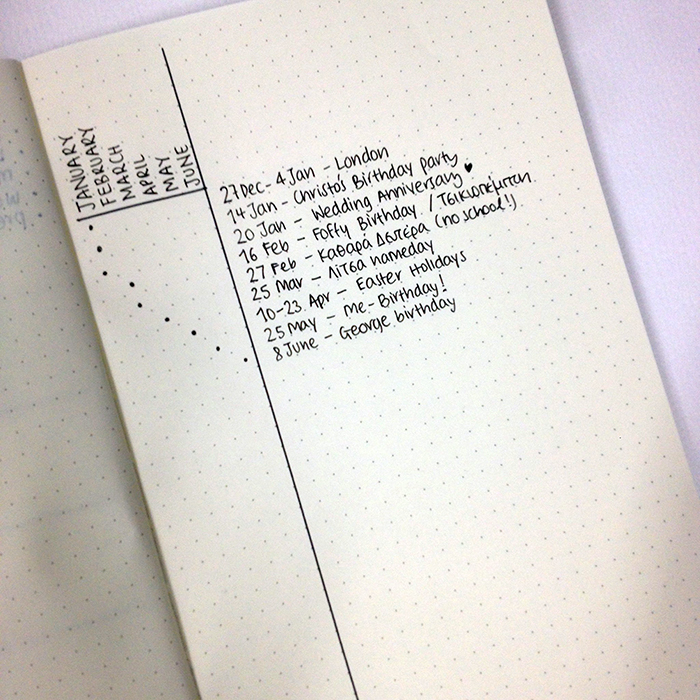 JANUARY
FEBRUARY
MARCH
APRIL
MAY
JUNE
27 Dec - 4 Jan - London
14 Jan - Christo's Birthday party
20 Jan - Wedding Anniversary ♥
16 Feb - Fofty Birthday / Τσικνοπέμπτη
27 Feb - Καθαρά Δευτέρα (no school!)
25 Mar - Λίτσα nameday
10-23 Apr - Easter Holidays
25 May - Me - Birthday!
8 June - George birthday